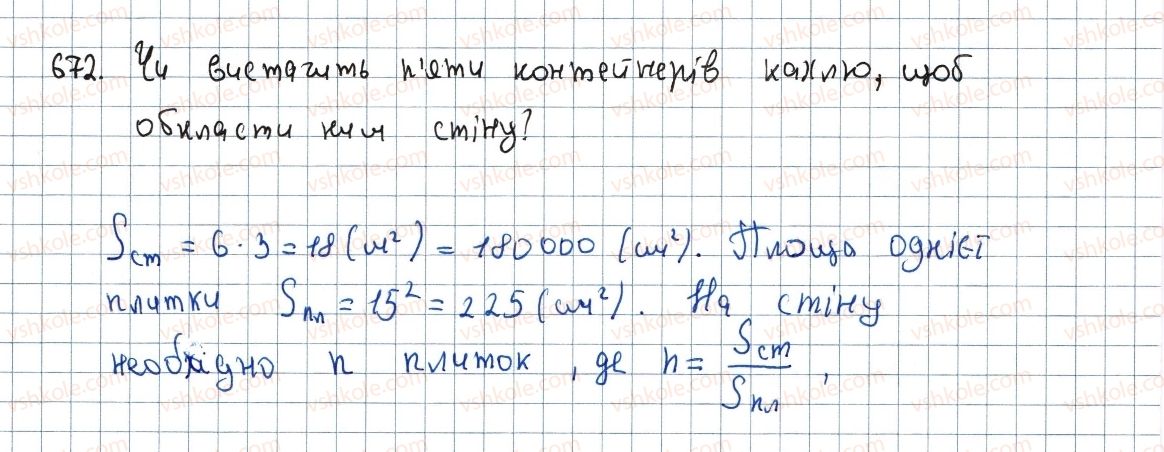 672. Чи вистачить п'яти контейнерів кахлю, щоб
обкласти ним стіну?
Sст = 6 · 3 = 18 (м²) = 180000 (см²). Площа однієї
плитки Sпл = 15² = 225 (см²). На стіну
необхідно n плиток, де n = Sст / Sпл ,